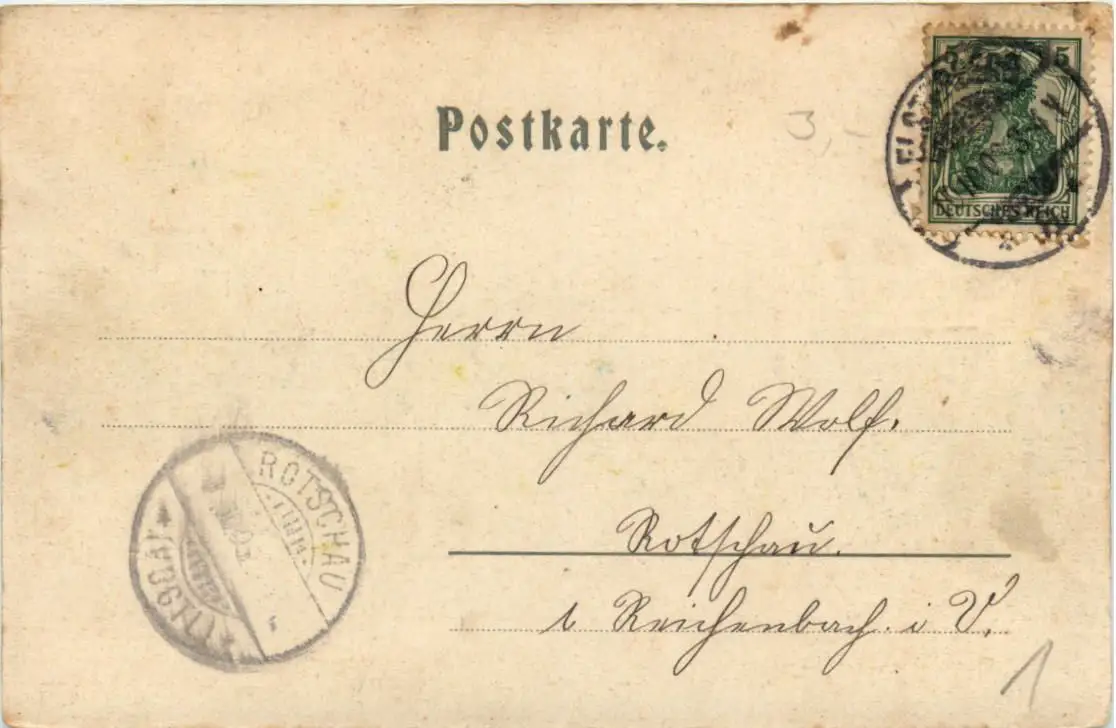 Postkarte.
3,-
5 5
DEUTSCHES REICH
Herrn
Richard Wolf.
Rotschau.
b Reichenbach. i V.
ROTSCHAU
*(VOGTL)*
1